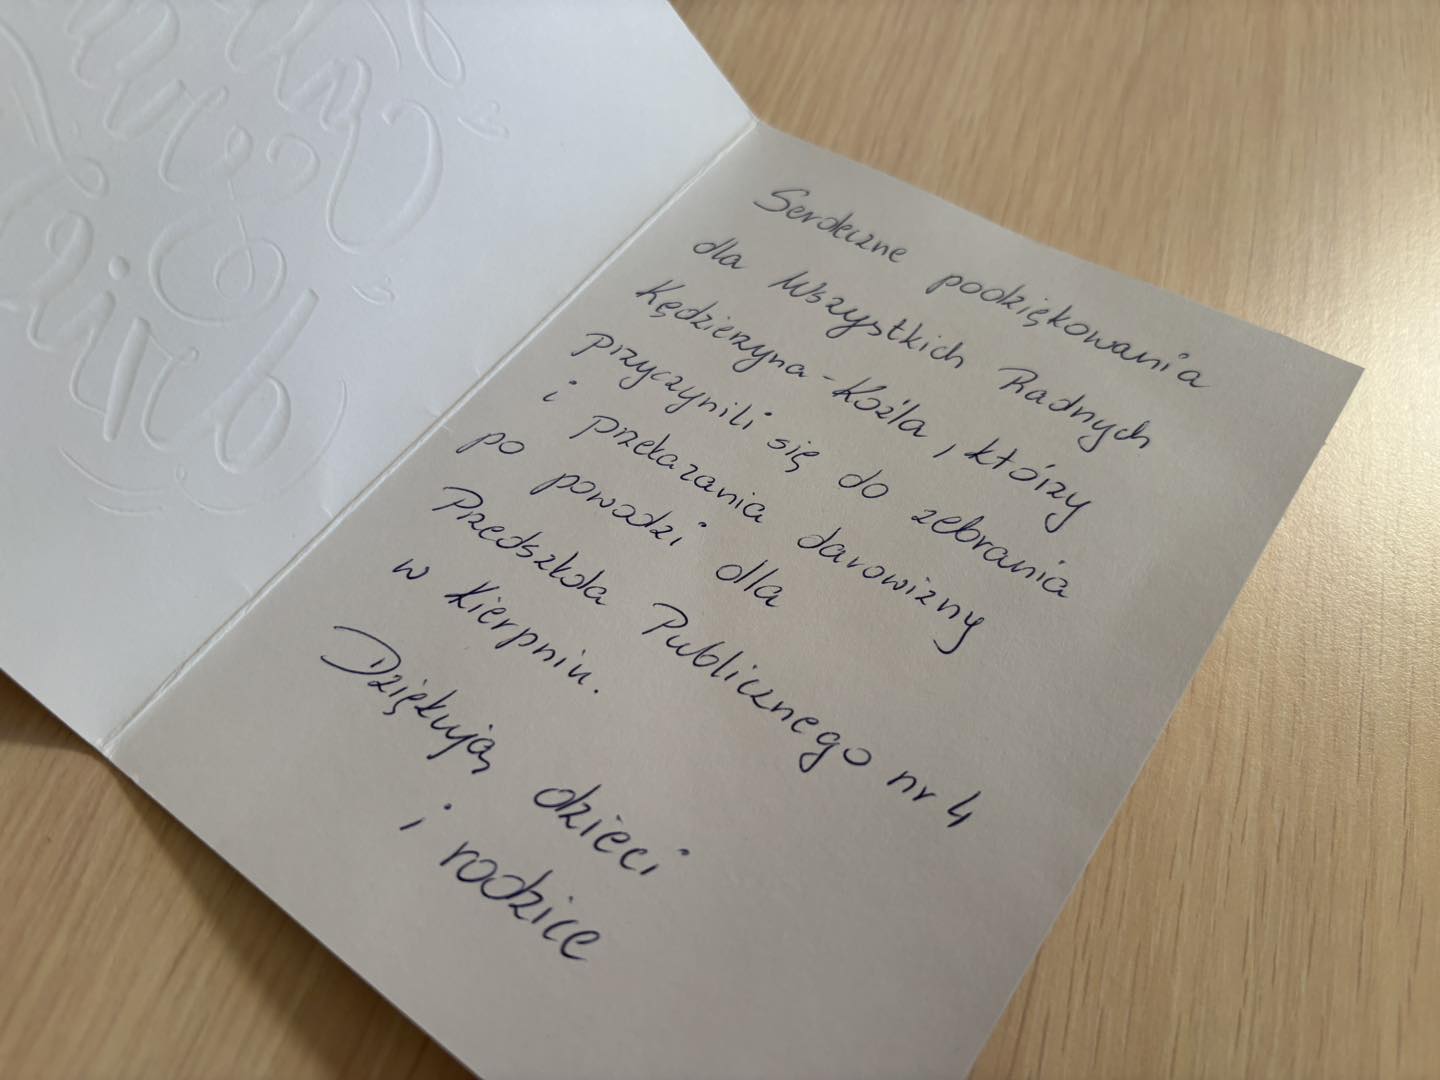 Serdeczne podziękowania
dla Wszystkich Radnych
Kędzierzyna-Koźla, którzy
przyczynili się do zebrania
i przekazania darowizny
po powodzi dla
Przedszkola Publicznego nr 4
w Kierpniu.
Dziękują dzieci
i rodzice